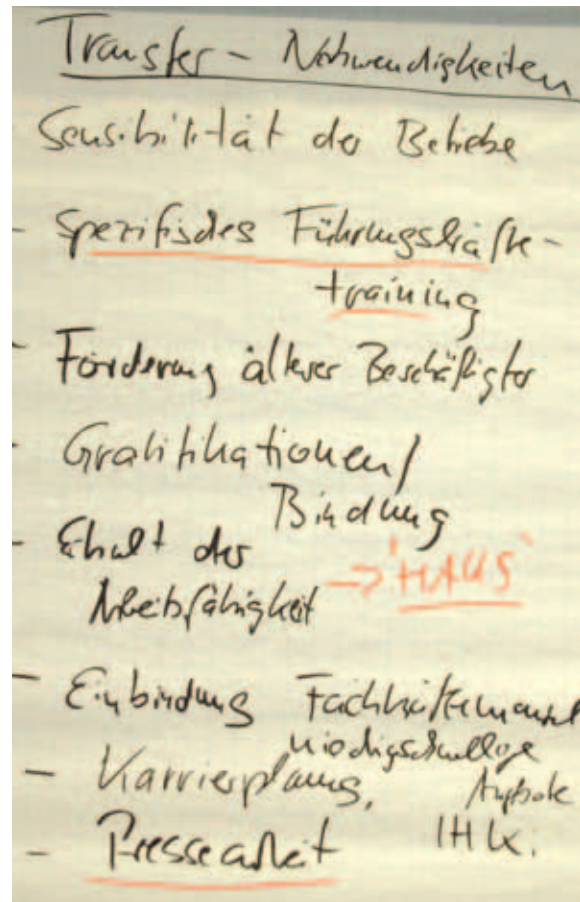 Transfer - Notwendigkeiten
Sensibilität der Betriebe
- Spezifisches Führungskräfte-
training
- Förderung älterer Beschäftigter
- Gratifikationen/
Bindung
- Erhalt der
Arbeitsfähigkeit → "HAUS"
- Einbindung Fachkräftemangel
niedrigschwellige
- Karriereplanung, Angebote
- Pressearbeit IHK.